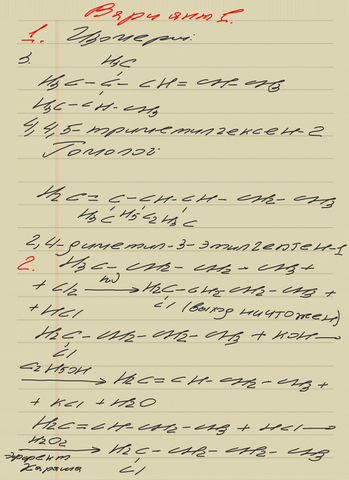 Вариант 1.
1. Изомери:
3. H3C
H3C - C - CH = CH - CH3
H3C - CH - CH3
4,4,5-триметилгексен-2
Гомолог:
H2C = C - CH - CH - CH2 - CH3
H3C H5C2 H3C
2,4-диметил-3-этилгептен-1
2. H3C - CH2 - CH2 - CH3 +
+ Cl2 hν → H2C - CH2 - CH2 - CH3 +
Cl (выход ничтожен)
+ HCl
H2C - CH2 - CH2 - CH3 + KOH →
Cl
C2H5OH → H2C = CH - CH2 - CH3 +
+ KCl + H2O
H2C = CH - CH2 - CH3 + HCl →
H2O2 → H2C - CH2 - CH2 - CH3
эффект Cl
Хараша